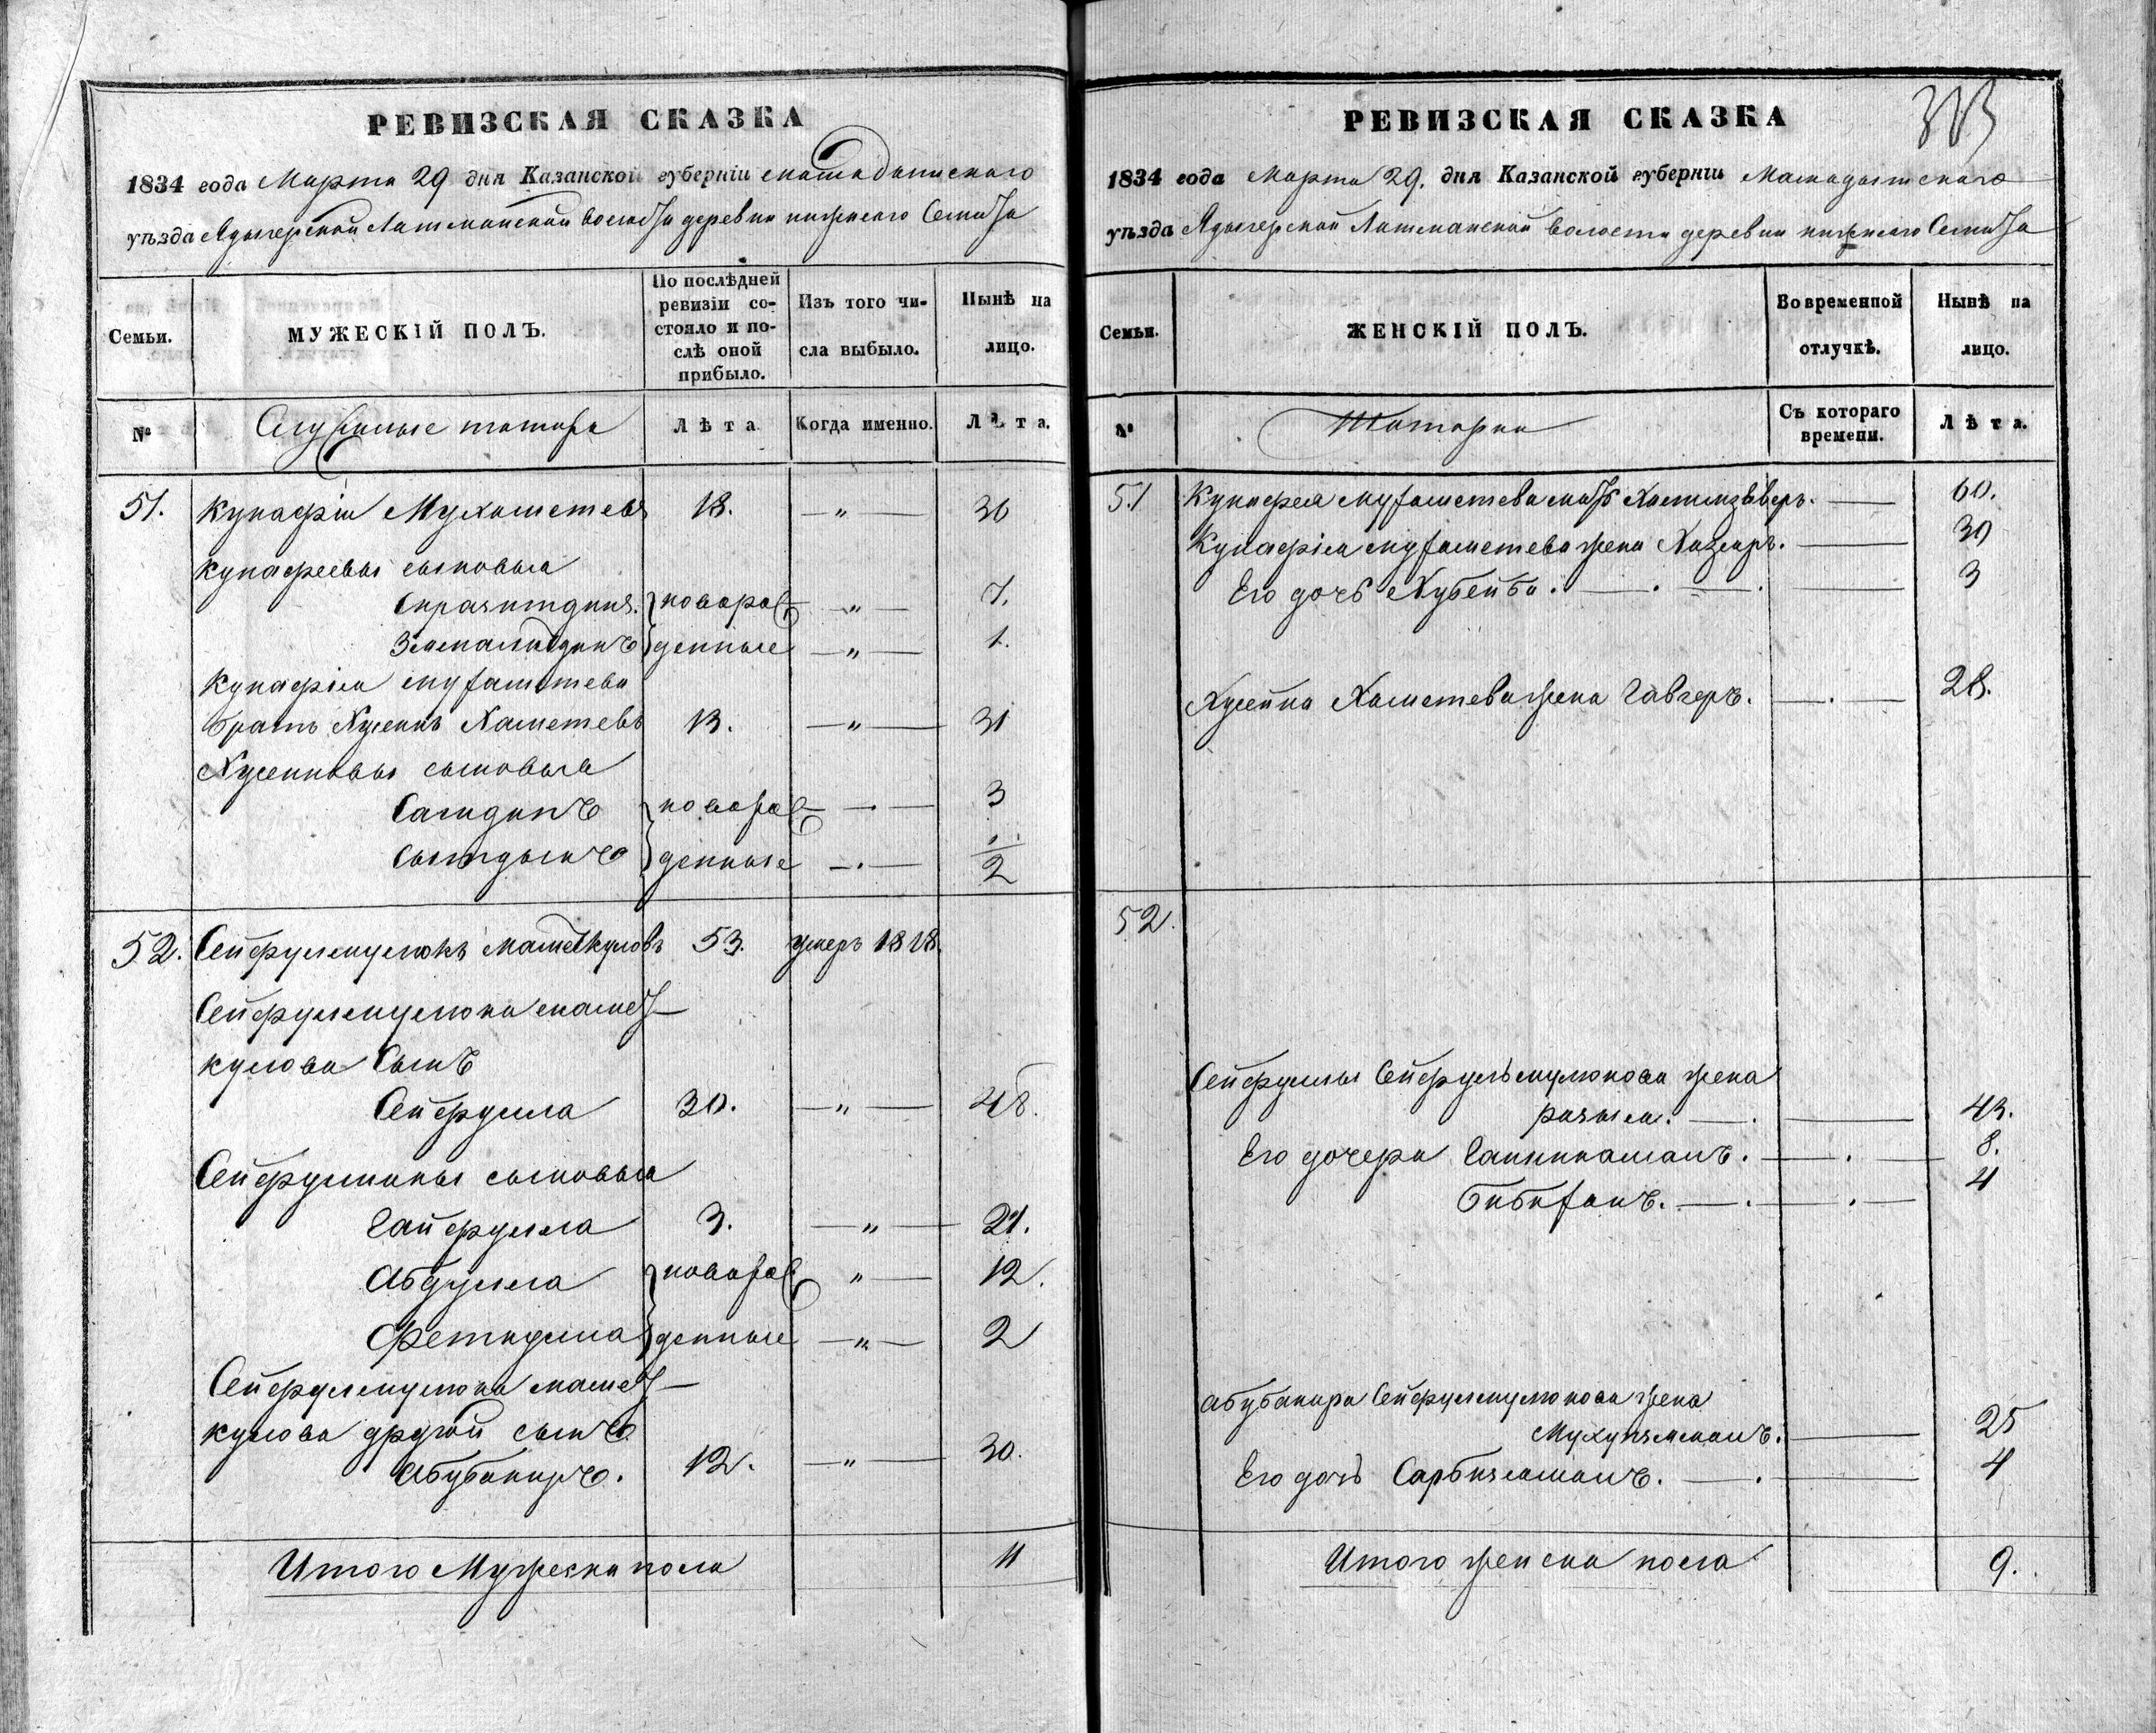 РЕВИЗСКАЯ СКАЗКА
1834 года Марта 29 дня Казанской губерніи Мамадышскаго
уѣзда Ядыгерской Лашманской волости деревни нижняго
Семьи.
МУЖЕСКІЙ ПОЛЪ.
По послѣдней
ревизіи со-
стояло и по-
слѣ оной
прибыло.
Изъ того чи-
сла выбыло.
Нынѣ на
лицо.
№
Служилые татара
Лѣта
Когда именно.
Лѣта.
51. Кунафіи Мухаметевъ 18. —„— 36
Кунафеевы сыновья
новорож 7.
денные —„— 1.
Кунафіи Мухаметева
братъ Хусеинъ Хаметевъ 13. —„— 31
Хусеиновы сыновья
новорож — . — 3
денные — . — 1/2
52. Сейфулмулюкъ Маметкуловъ 53. умеръ 1818.
Сейфулмулюка Мамет-
кулова сынъ
Сейфулла 30. —„— 48.
Сейфуллины сыновья
Гайфулла 3. —„— 21.
Абдулла новорож „— 12.
Феткулла денные —„— 2
Сейфулмулюка Мамет-
кулова другой сынъ
Абубакиръ. 12. —„— 30.
Итого Мужеска пола 11
РЕВИЗСКАЯ СКАЗКА
1834 года Марта 29. дня Казанской губерніи Мамадышскаго
уѣзда Ядыгерской Лашманской волости деревни нижняго
Семьи.
ЖЕНСКІЙ ПОЛЪ.
Во временной
отлучкѣ.
Нынѣ на
лицо.
№
Татарки
Съ котораго
времени.
Лѣта.
51 Кунафея Мухаметева мать 60.
Кунафіи Мухаметева жена 39
Его дочь Хубейба. 3
Хусеина Хаметева жена Гавгеръ. 28.
52.
Сейфуллы Сейфульмулюкова жена
43.
Его дочери 8.
Бибиханъ. 4
Абубакира Сейфулмулюкова жена
25
Его дочь Сарбижамалъ. 4
Итого женска пола 9.